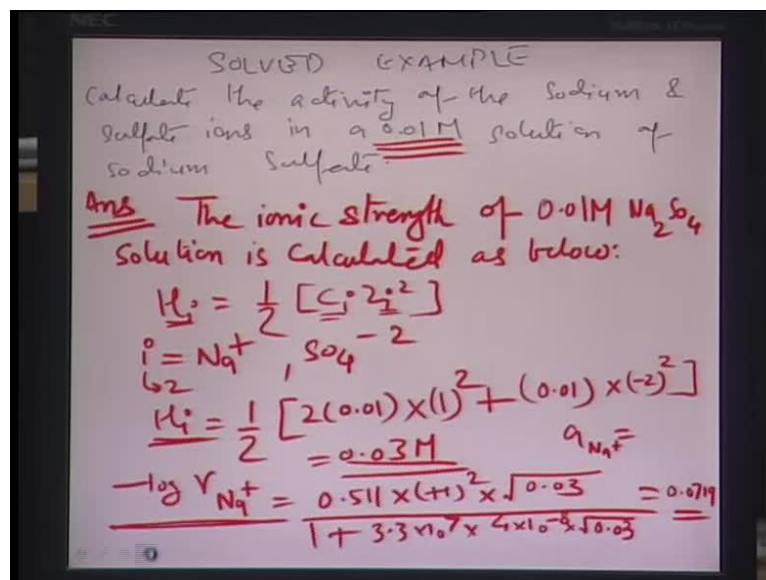 NEC
SOLVED EXAMPLE
Calculate the activity of the Sodium &
Sulfate ions in a 0.01M solution of
sodium Sulfate.
Ans The ionic strength of 0.01M Na2So4
Solution is Calculated as below:
Hi = 1/2 [Ci Zi²]
i = Na+, SO4-2
↳2
Hi = 1/2 [2(0.01)×(1)² + (0.01)×(-2)²]
= 0.03M
aNa+ =
-log γNa+ = 0.511×(+1)²×√0.03 / 1 + 3.3×10^7 × 4×10^-8×√0.03 = 0.0719